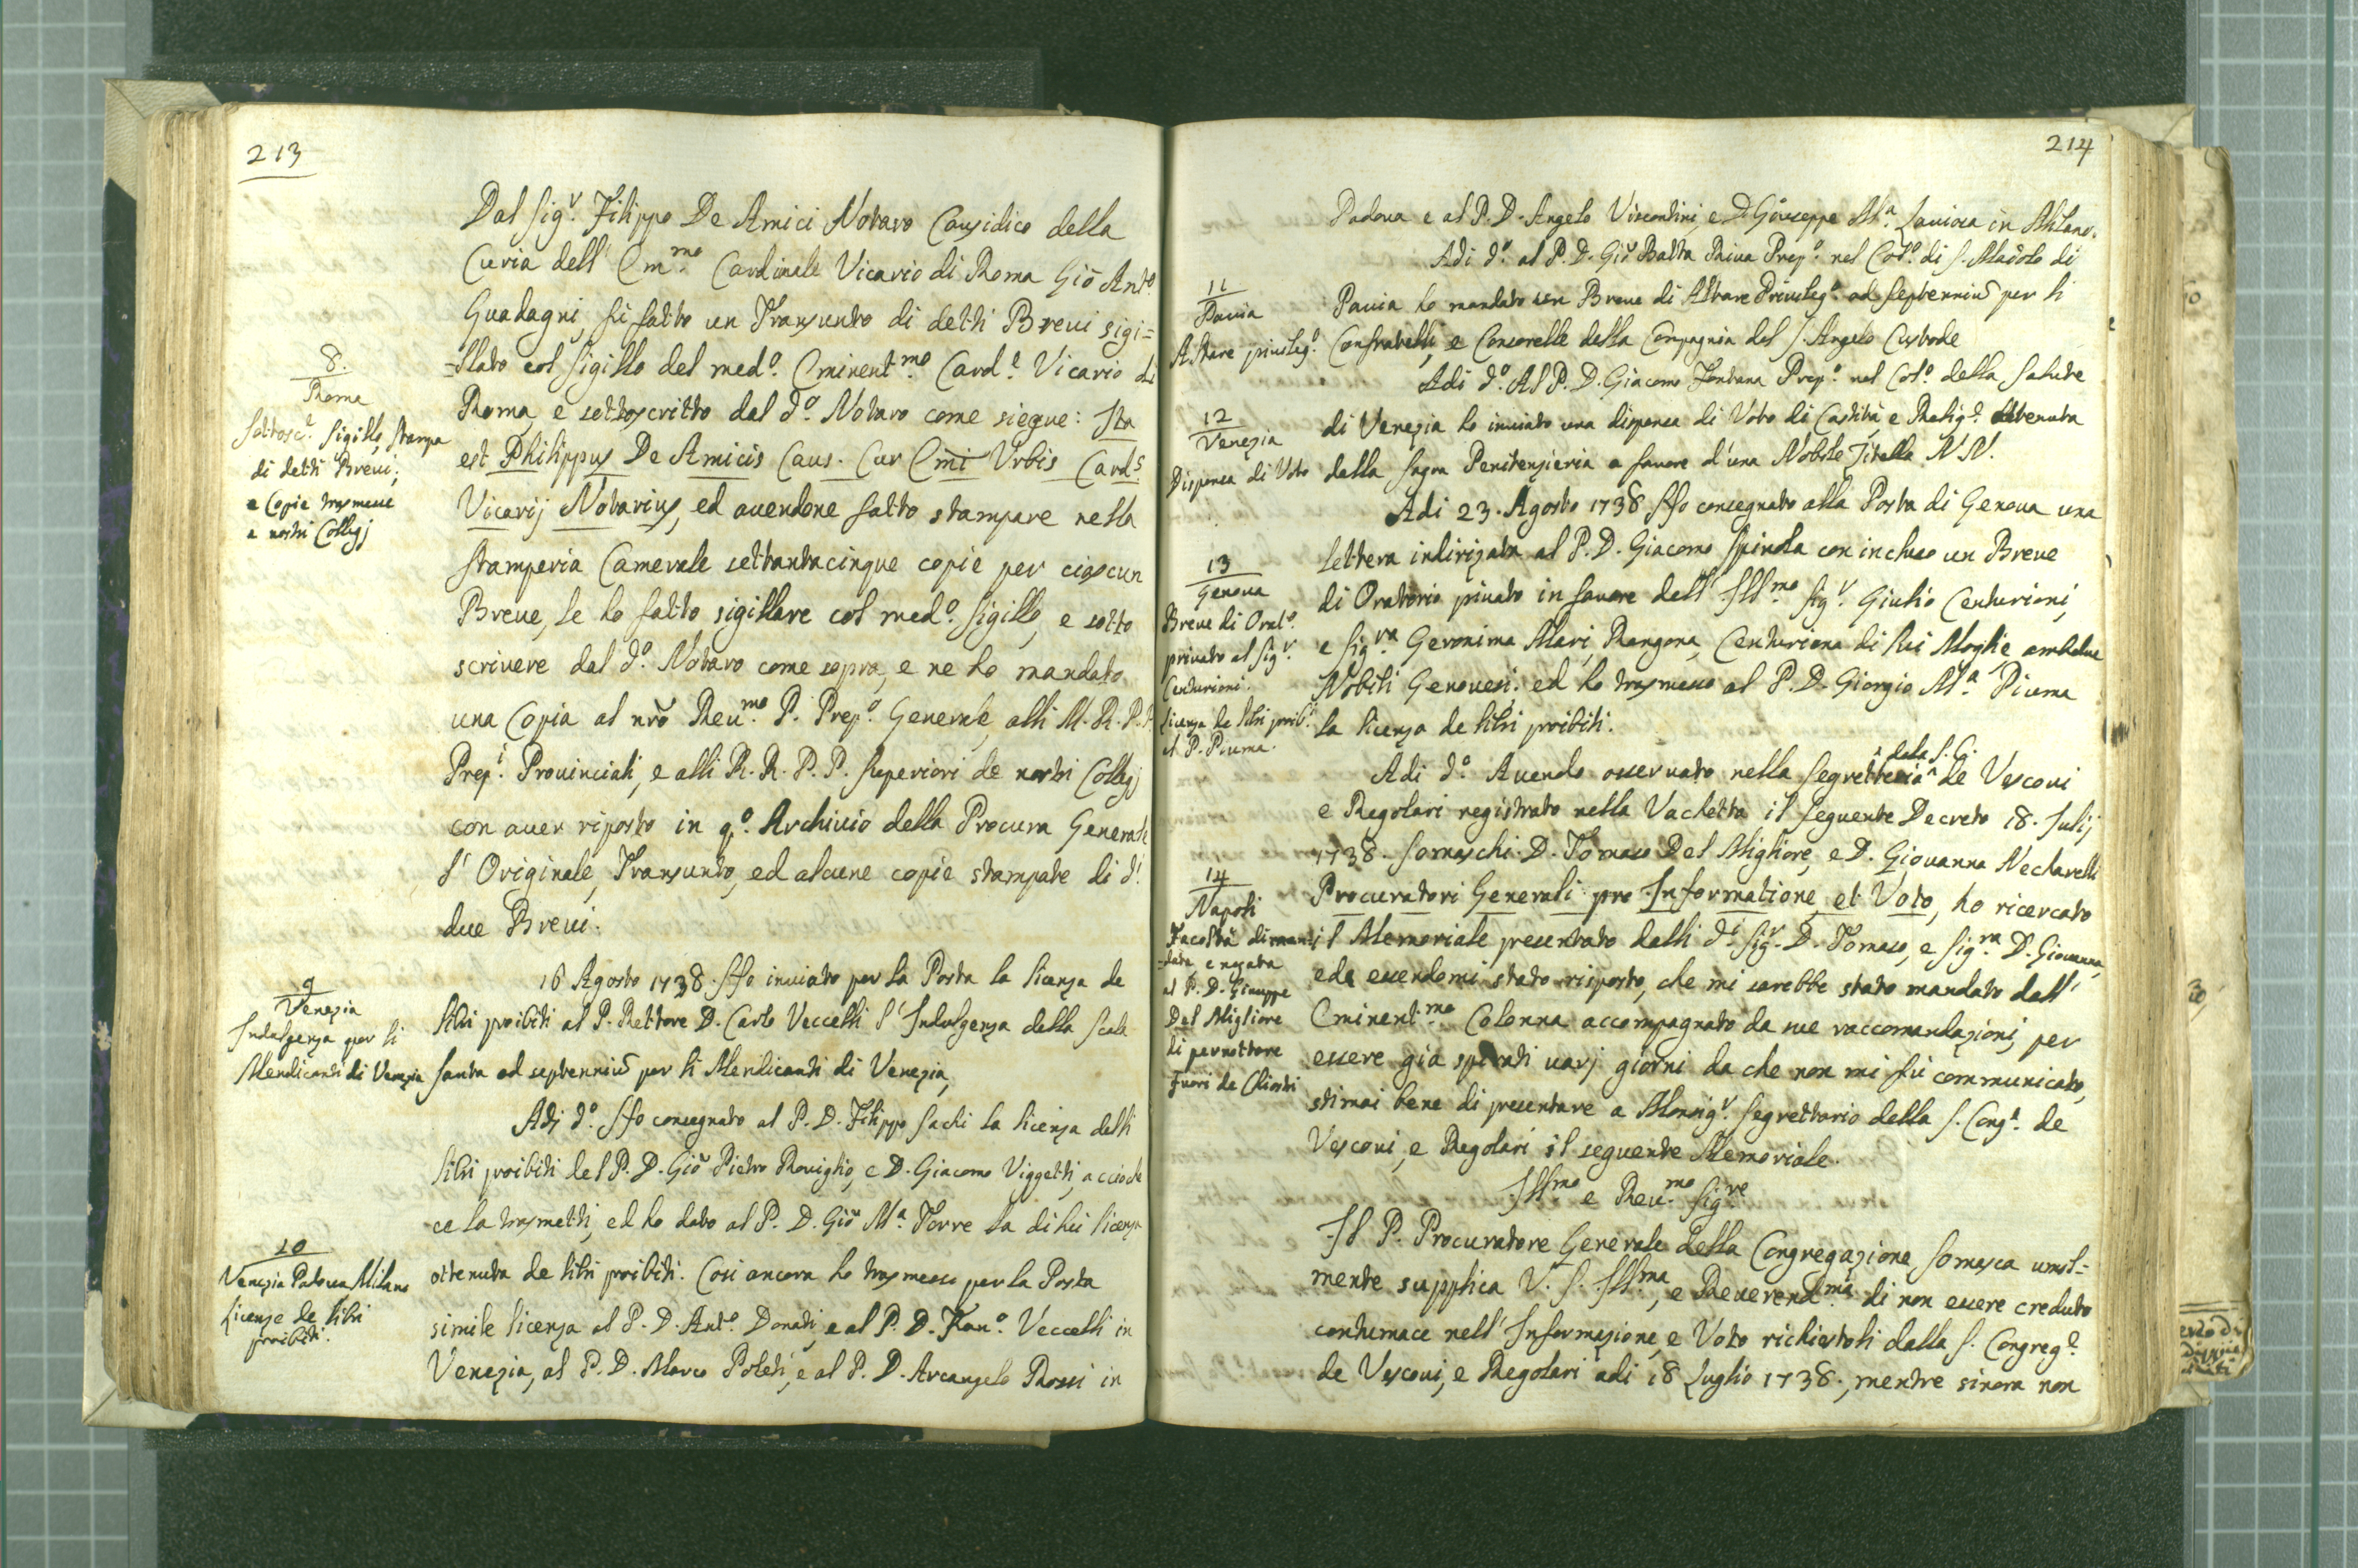 213
Dal Sig.r Filippo De Amici Notaro Causidico della
Curia dell' Em.mo Cardinale Vicario di Roma Giō Ant.o
Guadagni, fù fatto un Transunto di detti Brevi sigi=
=llato col sigillo del med.o Eminent.mo Card.e Vicario di
Roma, e sottoscritto dal d.o Notaro come siegue: Ita
est Philippus De Amicis Caus. Cur Emi Urbis Card.s
Vicarij Notarius, ed avendone fatto stampare nella
Stamperia Camerale settantacinque copie per ciascun
Breve, le ho fatto sigillare col med.o Sigillo, e sotto
scrivere dal d.o Notaro come sopra, e ne ho mandato
una Copia al nrō Reu.mo P. Prep.o Generale, alli M. R. P. P.
Prep.i Provinciali, e alli R. R. P. P. Superiori de nostri Collegj
con aver riposto in q.o Archivio della Procura Generale
l' Originale, Transunto, ed alcune copie stampate di d.i
due Brevi.
16 Agosto 1738. Ho inviato per la Posta la licenza de
libri proibiti al P. Rettore D. Carlo Veccelli l' Indulgenza della Scala
Santa ad septenniū per li Mendicanti di Venezia,
Adj d.o Ho consegnato al P. D. Filippo Sachi la licenza delli
libri proibiti del P. D. Giō Pietro Roviglio, e D. Giacomo Viggetti, accioche
ce la trasmetti, ed ho dato al P. D. Giō M.a Torre la di lui licenza
ottenuta de libri proibiti. Cosi ancora ho trasmesso per la Posta
simile licenza al P. D. Ant.o Donati, e al P. D. Fran.o Veccelli in
Venezia, al P. D. Marco Poleti, e al P. D. Arcangelo Rossi in
8.
Roma
Sottosc.e Sigillo, stampa
di detti Brevi,
e Copie trasmesse
a nostri Collegj
9
Venezia
Indulgenza per li
Mendicanti di Venezia
10
Venezia Padova Milano
Licenze de libri
proibiti.
214
Padova e al P. D. Angelo Viscontini, e D. Giuseppe M.a Laviosa in Milano.
Adi d.o al P. D. Giō Batta Riva Prep.o nel Col.o di S. Maiolo di
Pavia ho mandato un Breve di Altare Privileg.o ad septenniū per li
Confratelli, e Consorelle della Compagnia del S. Angelo Custode
Adi d.o Al P. D. Giacomo Fontana Prep.o nel Col.o della Salute
di Venezia ho inviato una dispensa di Voto di Castità, e Relig.e ottenuta
della Sagra Penitenzieria a favore d'una Nobile Zitella N. N.
Adi 23. Agosto 1738 Ho consegnato alla Posta di Genova una
lettera indirizata al P. D. Giacomo Spinola con incluso un Breve
di Oratorio privato in favore dell' Ill.mo Sig.r Giulio Centurioni,
e Sig.ra Geronima Mari, Rangona, Centuriona di lui Moglie ambedue
Nobili Genovesi. ed ho trasmesso al P. D. Giorgio M.a Piuma
la licenza de libri proibiti.
Adi d.o Avendo osservato nella Segretteria ^dela S. C.^ de Vescovi
e Regolari registrato nella Vachetta il seguente Decreto 18. Julij
1738. Somaschi. D. Tomaso Del Migliore, e D. Giovanna Necharelli
Procuratori Generali pro Informatione, et Voto, ho ricercato
il Memoriale presentato dalli d.i Sig.r D. Tomaso, e Sig.ra D. Giovanna,
ed essendomi stato risposto, che mi sarebbe stato mandato dall'
Eminent.mo Colonna accompagnato da sue raccomandazioni, per
essere già spirati varj giorni da che non mi fù communicato,
stimai bene di presentare a Monsig.r Segrettario della S. Cong.e de
Vescovi, e Regolari il seguente Memoriale.
Ill.mo e Reu.mo Sig.re
Il P. Procuratore Generale della Congregazione Somasca umil=
mente supplica V. S. Ill.ma, e Reverend.ma di non essere creduto
contumace nell' Informazione, e Voto richiestoli dalla S. Congreg.e
de Vescovi, e Regolari adi 18 Luglio 1738., mentre sinora non
11
Pavia
Altare privileg.o
12
Venezia
Dispensa di Voto
13
Genova
Breve di Orat.o
privato al Sig.r
Centurioni.
Licenza de libri proib.i
al P. Piuma.
14
Napoli
Facoltà diman=
=data e negata
al P. D. Giuseppe
Del Migliore
di pernottare
fuori de Chiostri